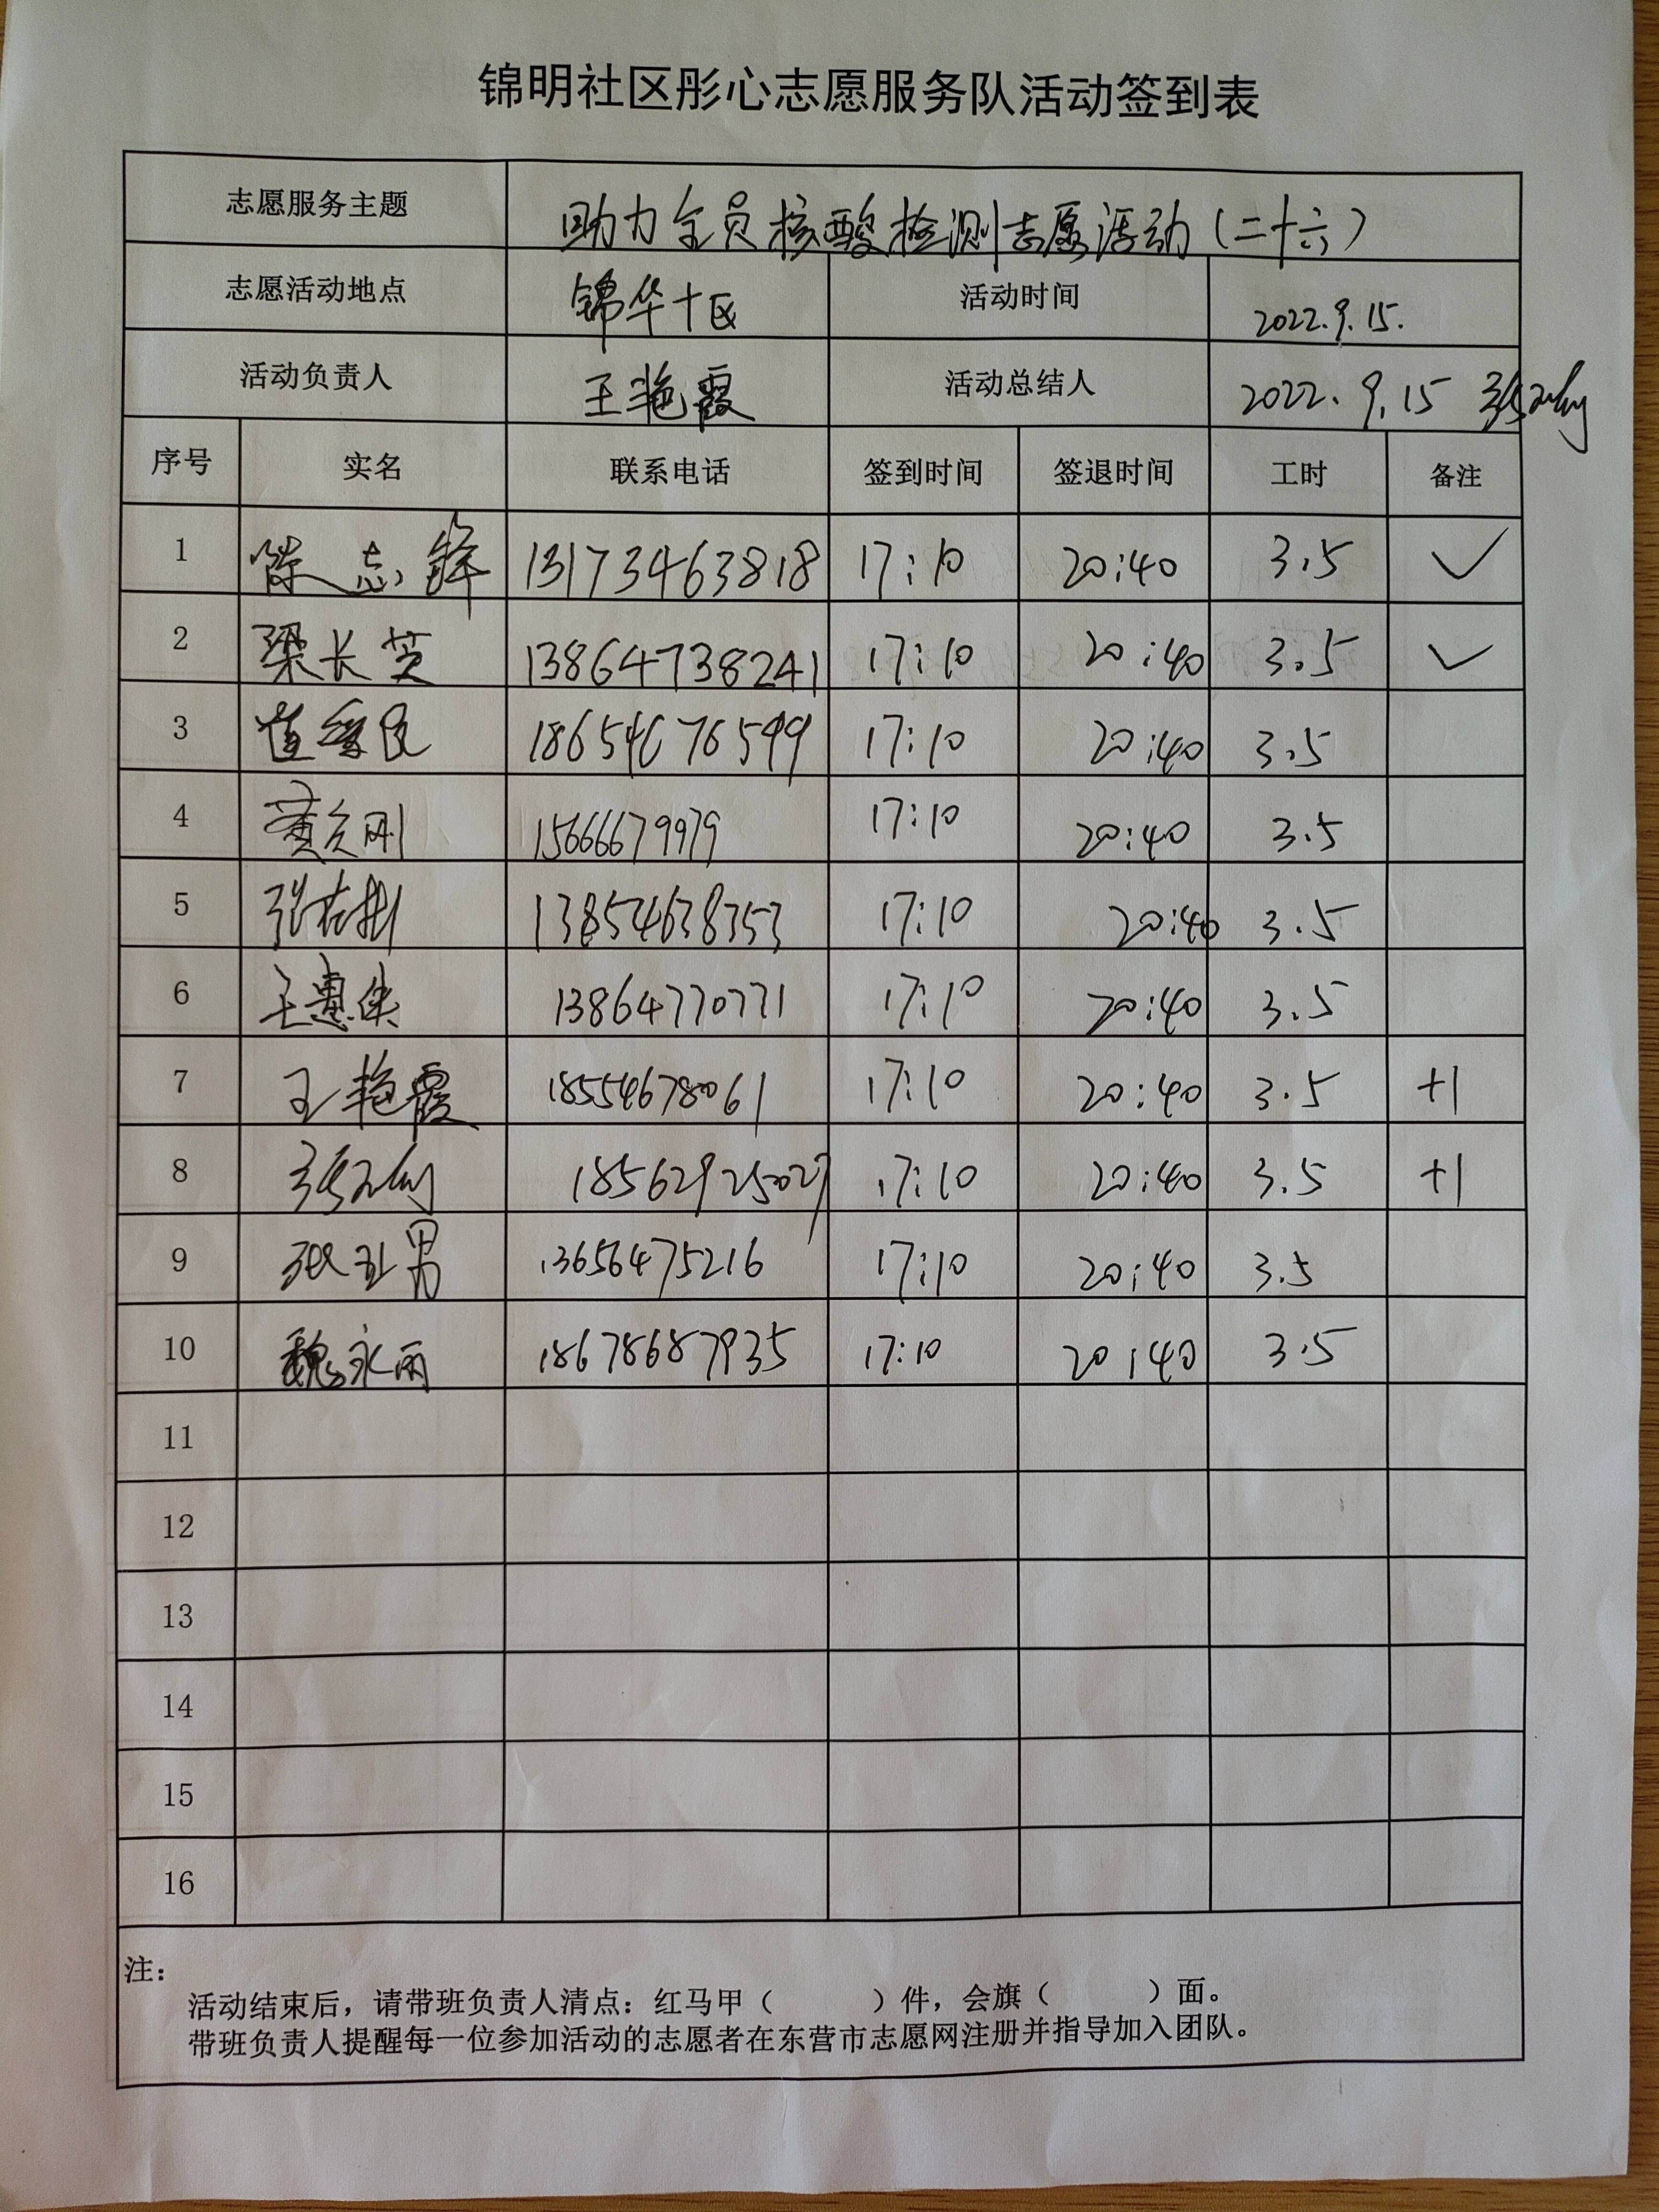 锦明社区彤心志愿服务队活动签到表
志愿服务主题 助力全员核酸检测志愿活动(二十六)
志愿活动地点 锦华十区 活动时间 2022.9.15.
活动负责人 王艳霞 活动总结人 2022.9.15
序号 实名 联系电话 签到时间 签退时间 工时 备注
1 陈志锋 13173463818 17:10 20:40 3.5 ✓
2 梁长英 13864738241 17:10 20:40 3.5 ✓
3 18654676599 17:10 20:40 3.5
4 15666679979 17:10 20:40 3.5
5 13854638353 17:10 20:40 3.5
6 王惠侠 13864770771 17:10 20:40 3.5
7 王艳霞 18554678061 17:10 20:40 3.5 +1
8 18562925027 17:10 20:40 3.5 +1
9 13656475216 17:10 20:40 3.5
10 魏永丽 18678687935 17:10 20:40 3.5
11
12
13
14
15
16
注:
活动结束后,请带班负责人清点:红马甲( )件,会旗( )面。
带班负责人提醒每一位参加活动的志愿者在东营市志愿网注册并指导加入团队。